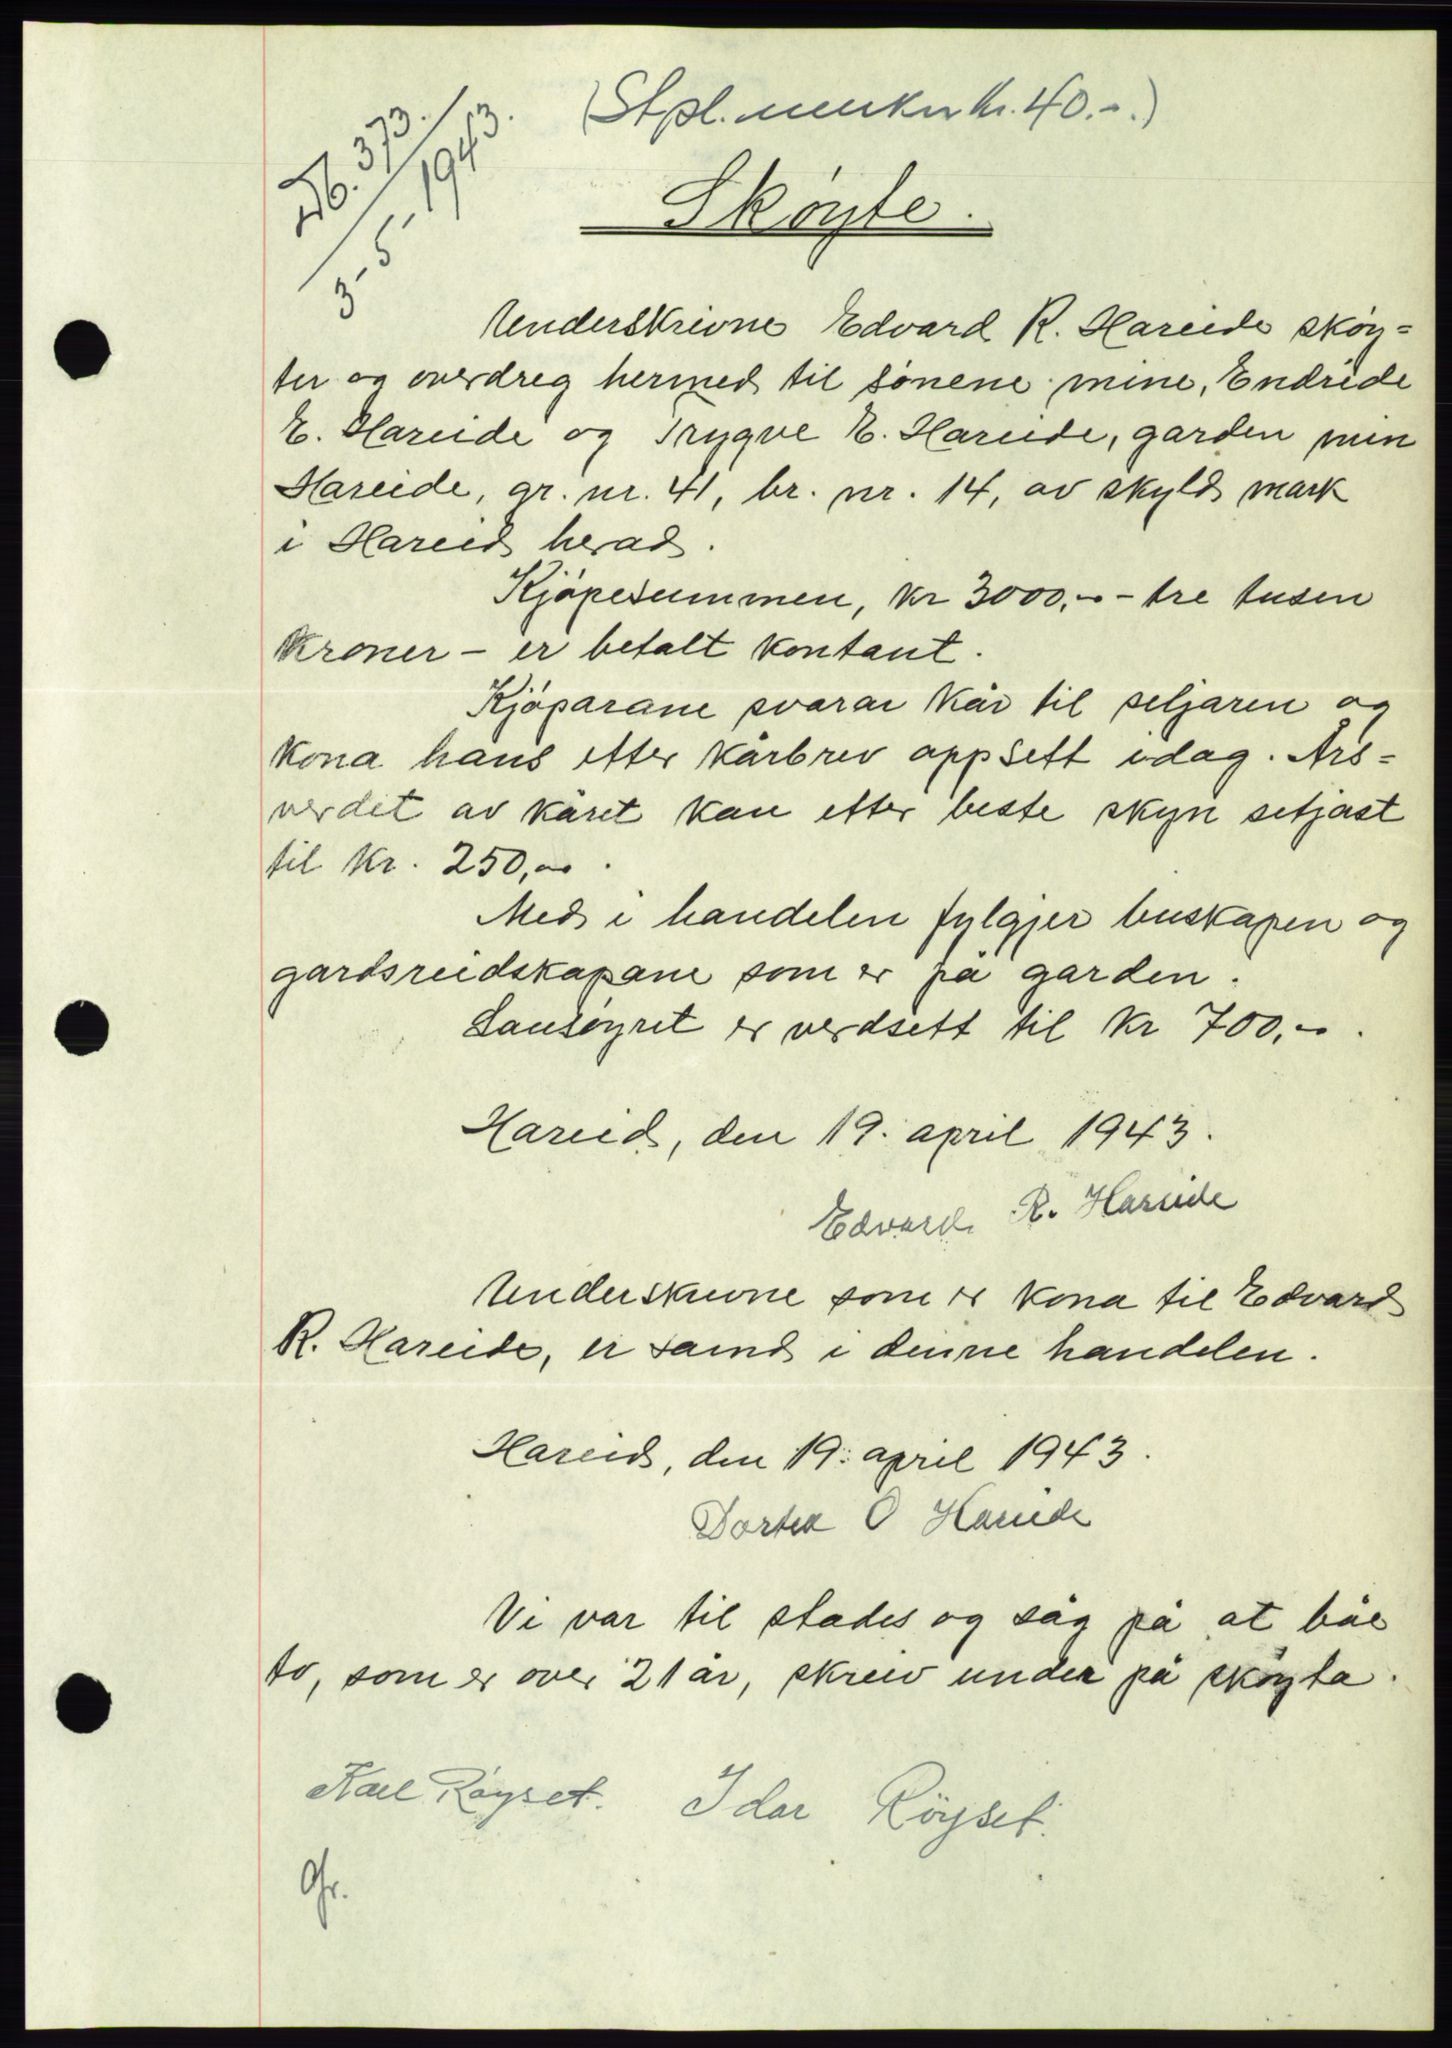 (Stpl. merker kr. 40.-.)
Db. 373.
3-5-1943.
Skøyte.
Underskrivne Edvard R. Hareide skøy-
ter og overdreg hermed til sønene mine, Endride
E. Hareide og Trygve E. Hareide, garden min
Hareide, gr. nr. 41, br. nr. 14, av skyld mark
i Hareid herad.
Kjøpesummen, kr 3000,- - tre tusen
kroner - er betalt kontant.
Kjøparane svarar kår til seljaren og
kona hans etter kårbrev oppsett idag. Års-
verdet av kåret kan etter beste skyn setjast
til kr. 250,- .
Med i handelen fylgjer buskapen og
gardsreidskapane som er på garden.
Lausøyret er verdsett til kr 700,- .
Hareid, den 19. april 1943.
Edvard R. Hareide
Underskrivne som er kona til Edvard
R. Hareide, er samd i denne handelen.
Hareid, den 19. april 1943.
Dortea O Hareide
Vi var til stades og såg på at båe
to, som er over 21 år, skreiv under på skøyta.
Karl Røyset. Idar Röyset.
Gr.